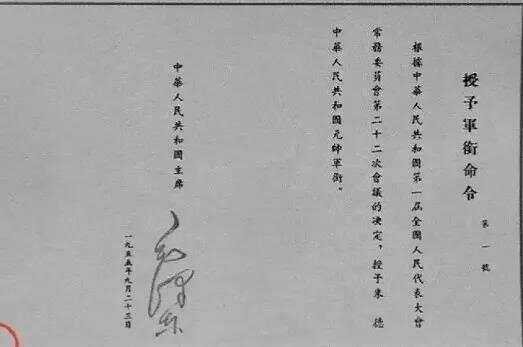 授予軍銜命令
第一號
根據中華人民共和國第一届全國人民代表大會
常務委員會第二十二次會議的决定，授予朱　德
中華人民共和國元帥軍銜。
中華人民共和國主席
毛澤東
一九五五年九月二十三日